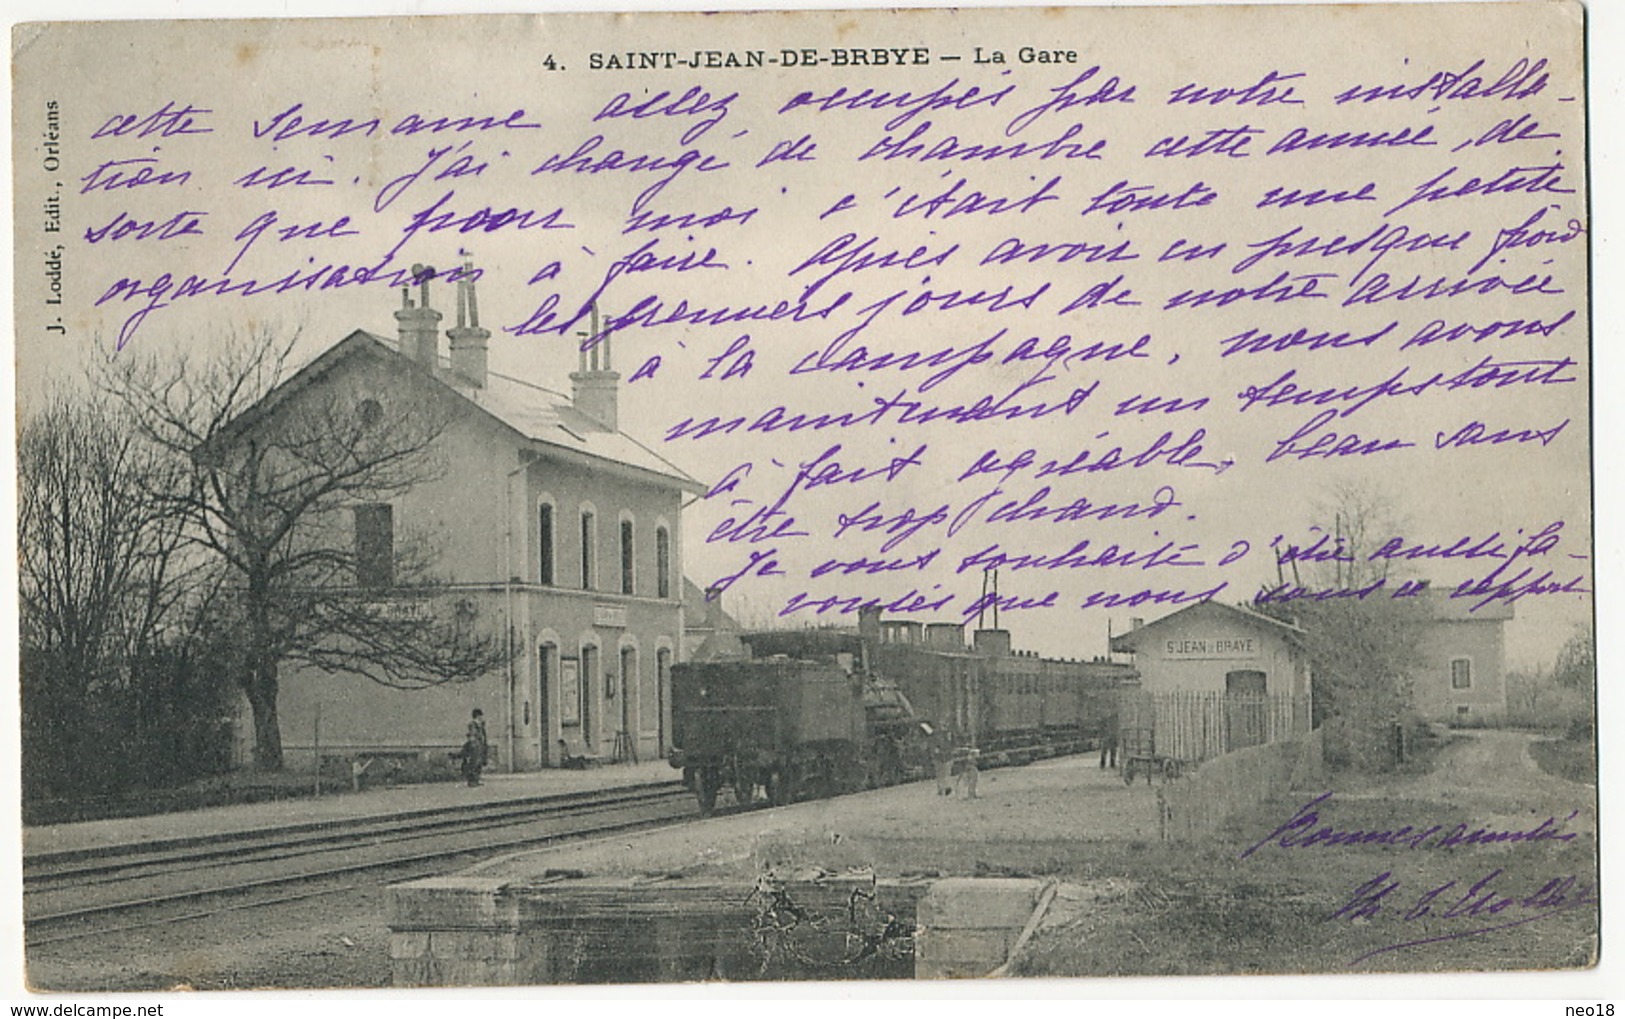 4. SAINT-JEAN-DE-BRBYE — La Gare
J. Loddé, Edit., Orléans
cette semaine assez occupés par notre installa-
tion ici. J'ai changé de chambre cette année, de
sorte que pour moi c'était toute une petite
organisation à faire. Après avoir eu presque froid
les premiers jours de notre arrivée
à la campagne, nous avons
maintenant un temps tout
à fait agréable, beau sans
être trop chaud.
Je vous souhaite d'être aussi fa-
vorisés que nous sous ce rapport.
BRAYE
St JEAN DE BRAYE
Bonnes amitiés
Th. E.
neo18
delcampe.net